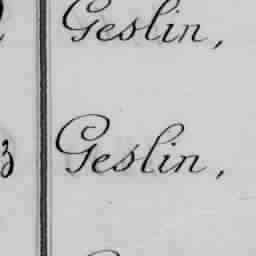 Geslin,
Geslin,